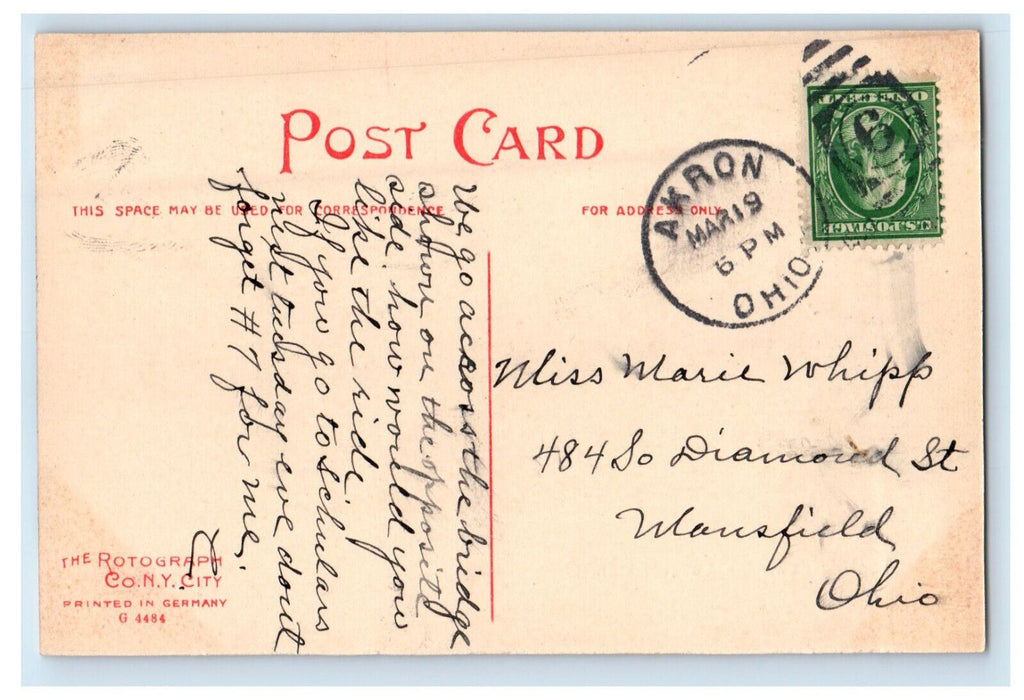 POST CARD
THIS SPACE MAY BE USED FOR CORRESPONDENCE
FOR ADDRESS ONLY
We go across the bridge
shown on the opposite
side. how would you
like the ride.
If you go to Schulars
next tuesday eve dont
forget #7 for me.
C.
AKRON
MAR 19
6 PM
OHIO
6
U.S. POSTAGE
ONE CENT
Miss Marie Whipp
484 So Diamond St
Mansfield
Ohio
THE ROTOGRAPH
CO. N.Y. CITY
PRINTED IN GERMANY
G 4484